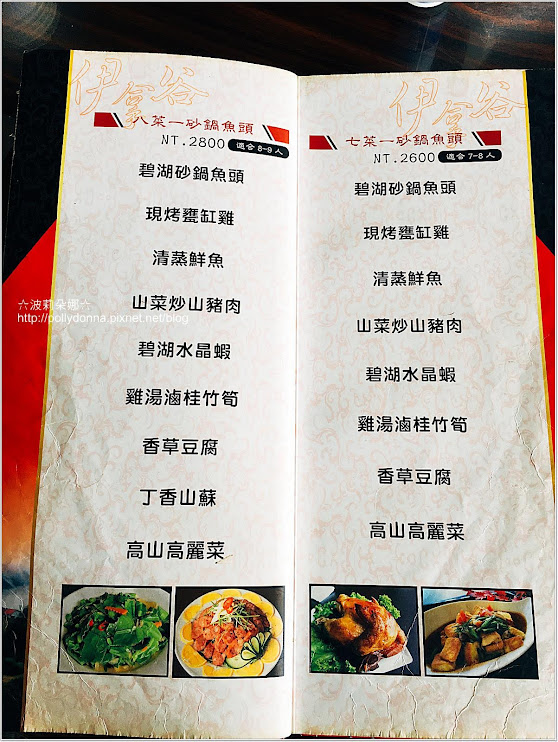 伊拿谷
八菜一砂鍋魚頭
NT.2800 適合8-9人
碧湖砂鍋魚頭
現烤甕缸雞
清蒸鮮魚
山菜炒山豬肉
碧湖水晶蝦
雞湯滷桂竹筍
香草豆腐
丁香山蘇
高山高麗菜
伊拿谷
七菜一砂鍋魚頭
NT.2600 適合7-8人
碧湖砂鍋魚頭
現烤甕缸雞
清蒸鮮魚
山菜炒山豬肉
碧湖水晶蝦
雞湯滷桂竹筍
香草豆腐
高山高麗菜
☆波莉朵娜☆
http://pollydonna.pixnet.net/blog